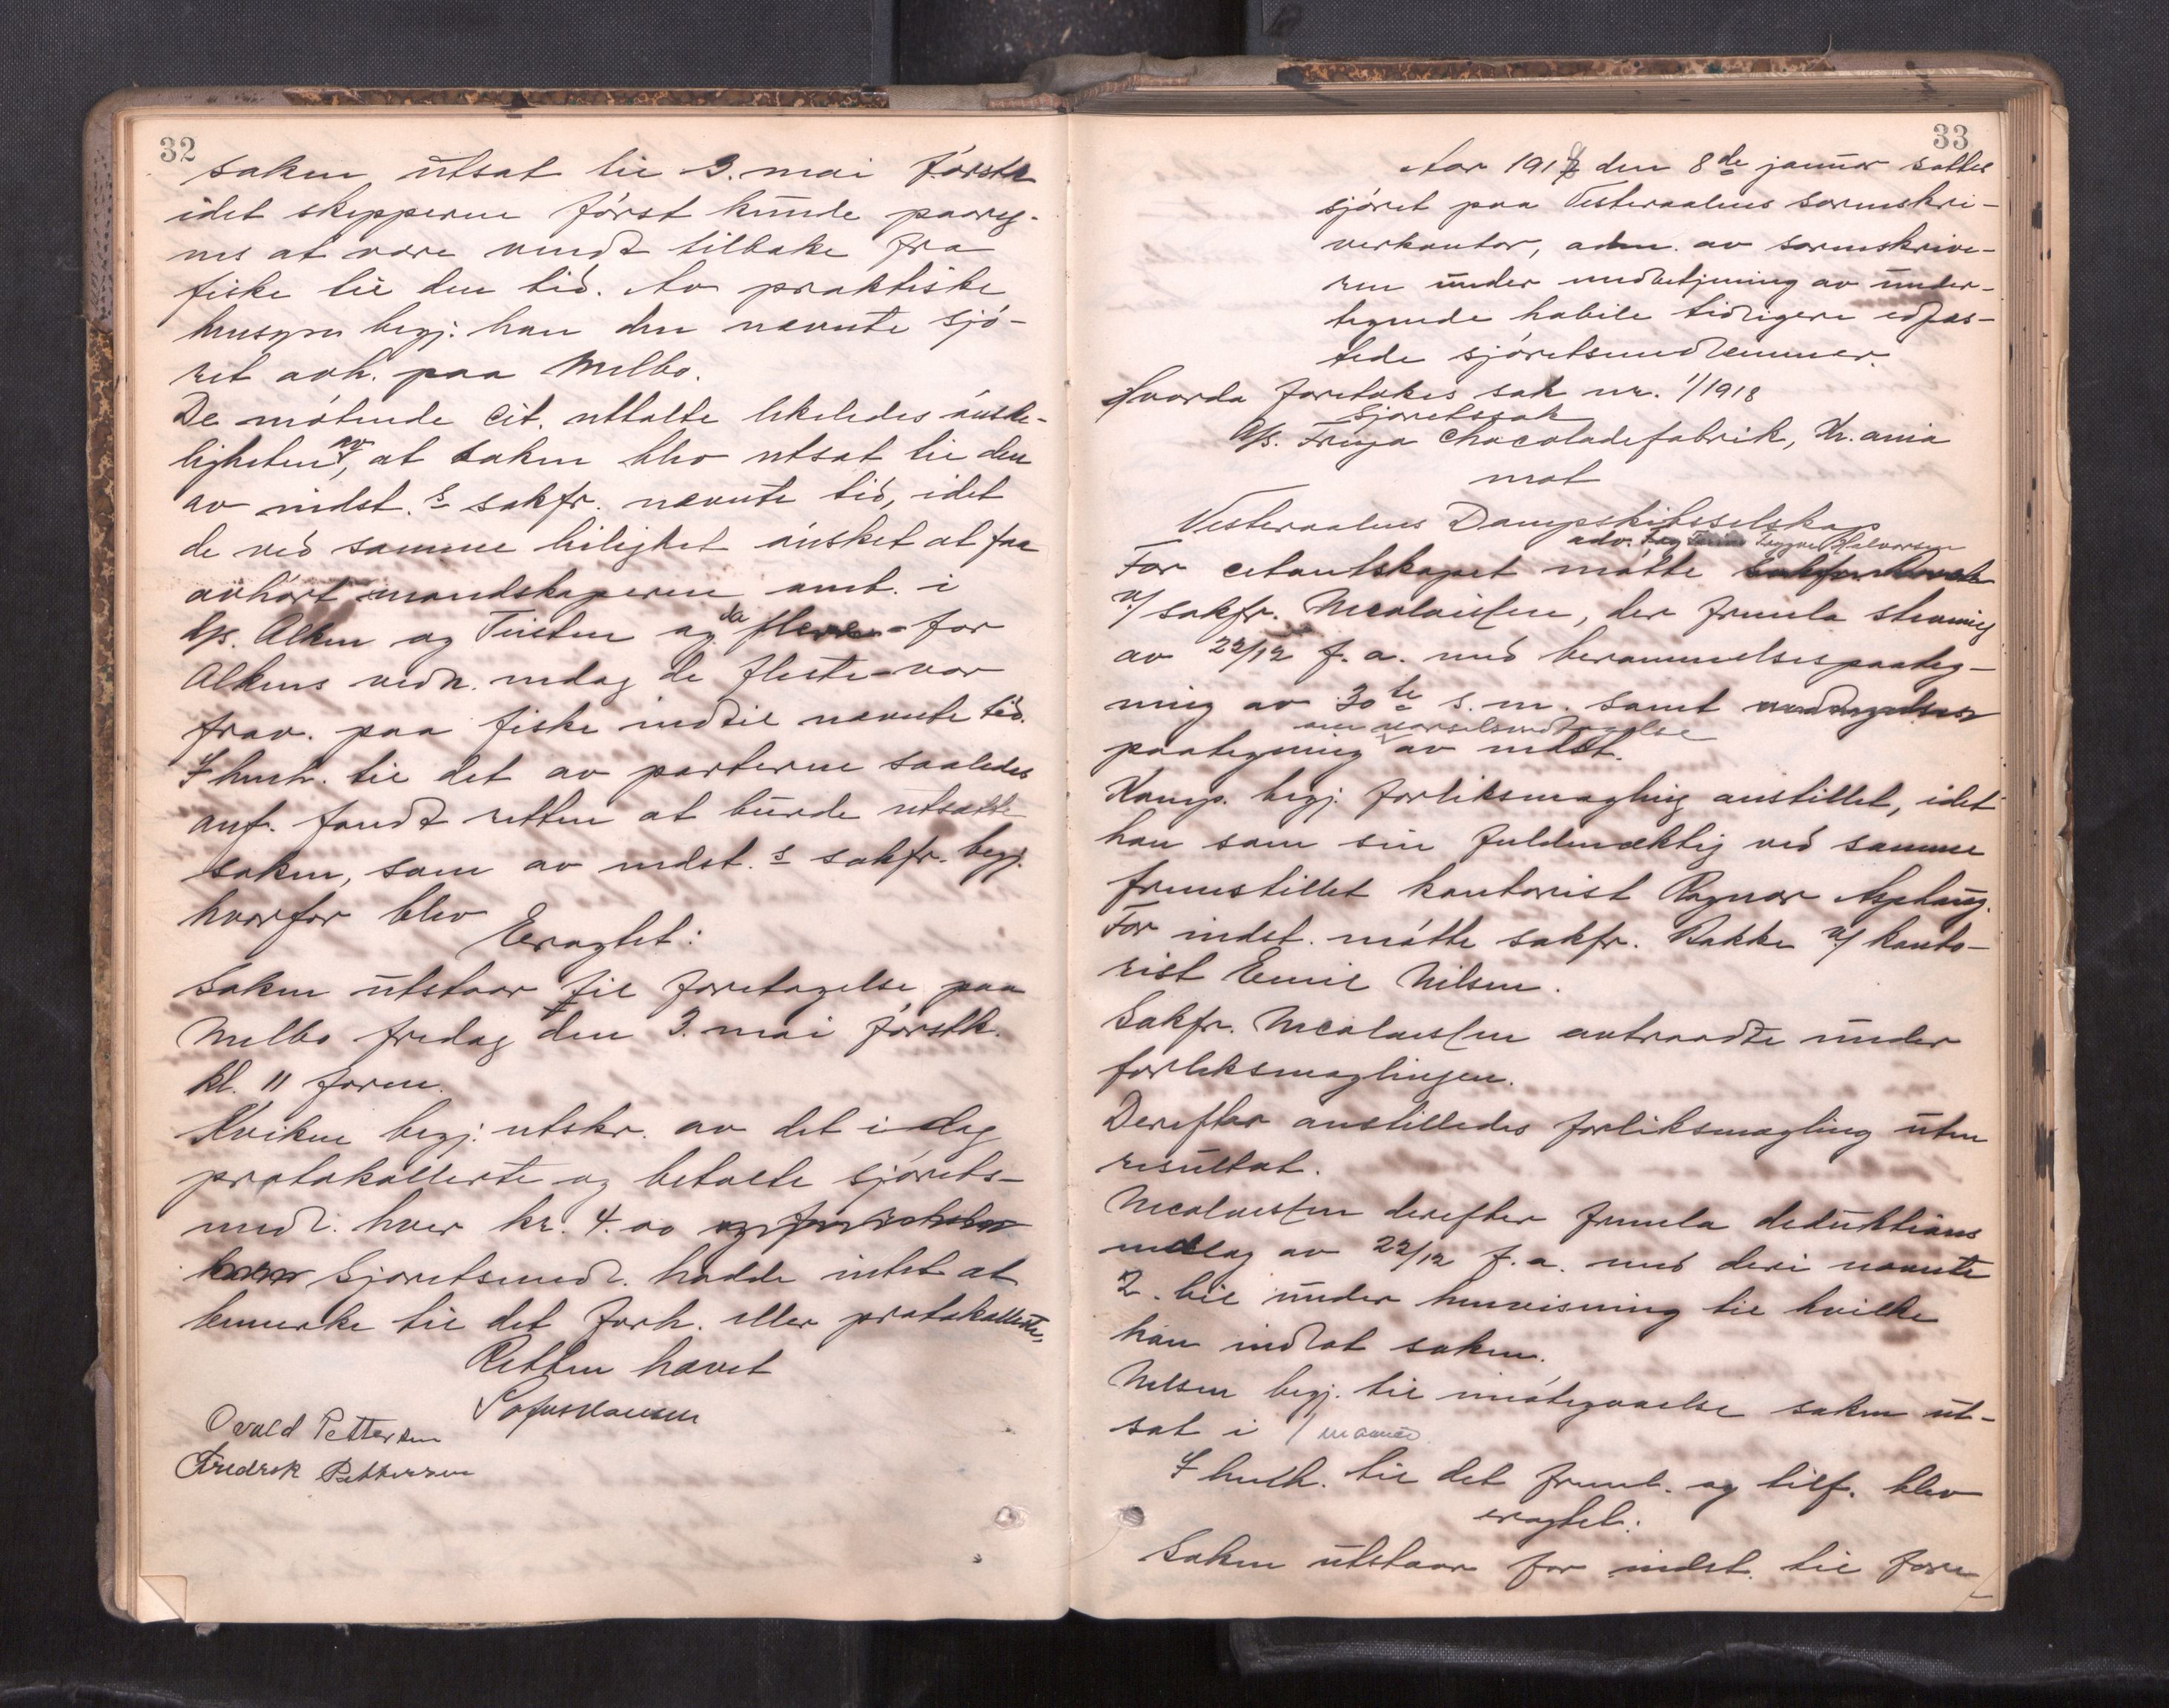 32
saken utsat til 3. mai førstk
idet skipperne først kunde paareg-
nes at være vendt tilbake fra
fiske til den tid. Av praktiske
hensyn begj. han den nævnte sjø-
ret avh. paa Melbo.
De møtende cit. uttalte likeledes ønske-
ligheten av, at saken blev utsat til den
av indst. s sakfr. nævnte tid, idet
de ved samme leilighet ønsket at faa
avhørt mandskaperne omb. i
d/s. Alken og Teisten og da flere - for
Alkens vedk. endog de fleste - var
frav. paa fiske indtil nævnte tid.
I henh. til det av parterne saaledes
anf. fandt retten at burde utsætte
saken, som av indst. s sakfr. begj.
hvorfor blev
Eragtet:
Saken utstaar til foretagelse paa
Melbo fredag den 3. mai førstk.
kl. 11 form.
Kviken begj. utskr. av det i dag
protokollerte og betalte sjørets-
medl. hver kr. 4.00
Sjøretsmedl. hadde intet at
bemerke til det forh. eller protokollerte.
Retten hævet
Sofus Hansen
Osvald Pettersen
Fredrik Pettersen
33
Aar 1918 den 8de januar sattes
sjøret paa Vesteraalens sorenskri-
verkontor, adm. av sorenskrive-
ren under medbetjening av under-
tegnede habile tidligere edfæs-
tede sjøretsmedlemmer.
Hvorda foretokes sak nr. 1/1918
Sjøretssak
A/s. Freya Chocoladefabrik, Kr.ania
mot
Vesteraalens Dampskibsselskap
adv. Trygve Halvorsen
For citantskapet møtte
v/ sakfr. Nicolaissen, der fremla stevning
av 22/12 f. a. med berammelsespaateg-
ning av 30te s. m. samt
om varselsmottagelse
paategning av indst.
Komp. begj. forliksmægling anstillet, idet
han som sin fuldmægtig ved samme
fremstillet kontorist Ragnar Asphaug.
For indst. møtte sakfr. Bakke v/ konto-
rist Emil Nilsen.
Sakfr. Nicolaissen avtraadte under
forliksmæglingen.
Derefter anstilledes forliksmægling uten
resultat.
Nicolaissen derefter fremla deduktions
indlæg av 22/12 f. a. med deri nævnte
2. bil under henvisning til hvilke
han indlot saken.
Nilsen begj. til imøtegaaelse saken ut-
sat i 1 maaned.
I henh. til det freml. og tilf. blev
eragtet:
Saken utstaar for indst. til fore